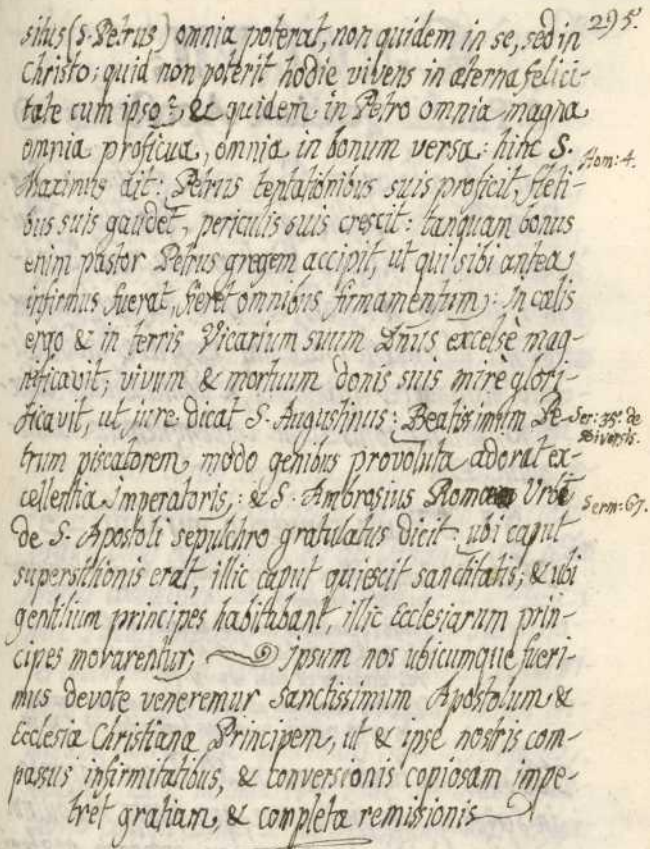 295.
situs (S. Petrus) omnia poterat, non quidem in se, sed in
Christo; quid non poterit hodie vivens in æterna felici-
tate cum ipso? & quidem in Petro omnia magna
omnia proficua, omnia in bonum versa: hinc S.
Hom: 4.
Maximus dit: Petrus tentationibus suis proficit, fleti-
bus suis gaudet, periculis suis crescit: tanquam bonus
enim pastor Petrus gregem accipit, ut qui sibi antea
infirmus fuerat, fieret omnibus firmamentum: In cælis
ergo & in terris Vicarium suum Dñus excelsè mag-
nificavit; vivum & mortuum donis suis mirè glori-
ficavit, ut jure dicat S. Augustinus: Beatissimum Pe-
Ser: 35. de
Diversis.
trum piscatorem, modo genibus provoluta adorat ex-
cellentia Imperatoris: & S. Ambrosius Romæ Urbe
Serm: 67.
de S. Apostoli sepulchro gratulatus dicit: ubi caput
superstitionis erat, illic caput quiescit sanctitatis; & ubi
gentilium principes habitabant, illic Ecclesiarum prin-
cipes morarentur; Ipsum nos ubicumque fueri-
mus devote veneremur Sanctissimum Apostolum &
Ecclesiæ Christianæ Principem, ut & ipse nostris com-
passus infirmitatibus, & conversionis copiosam impe-
tret gratiam, & completæ remissionis